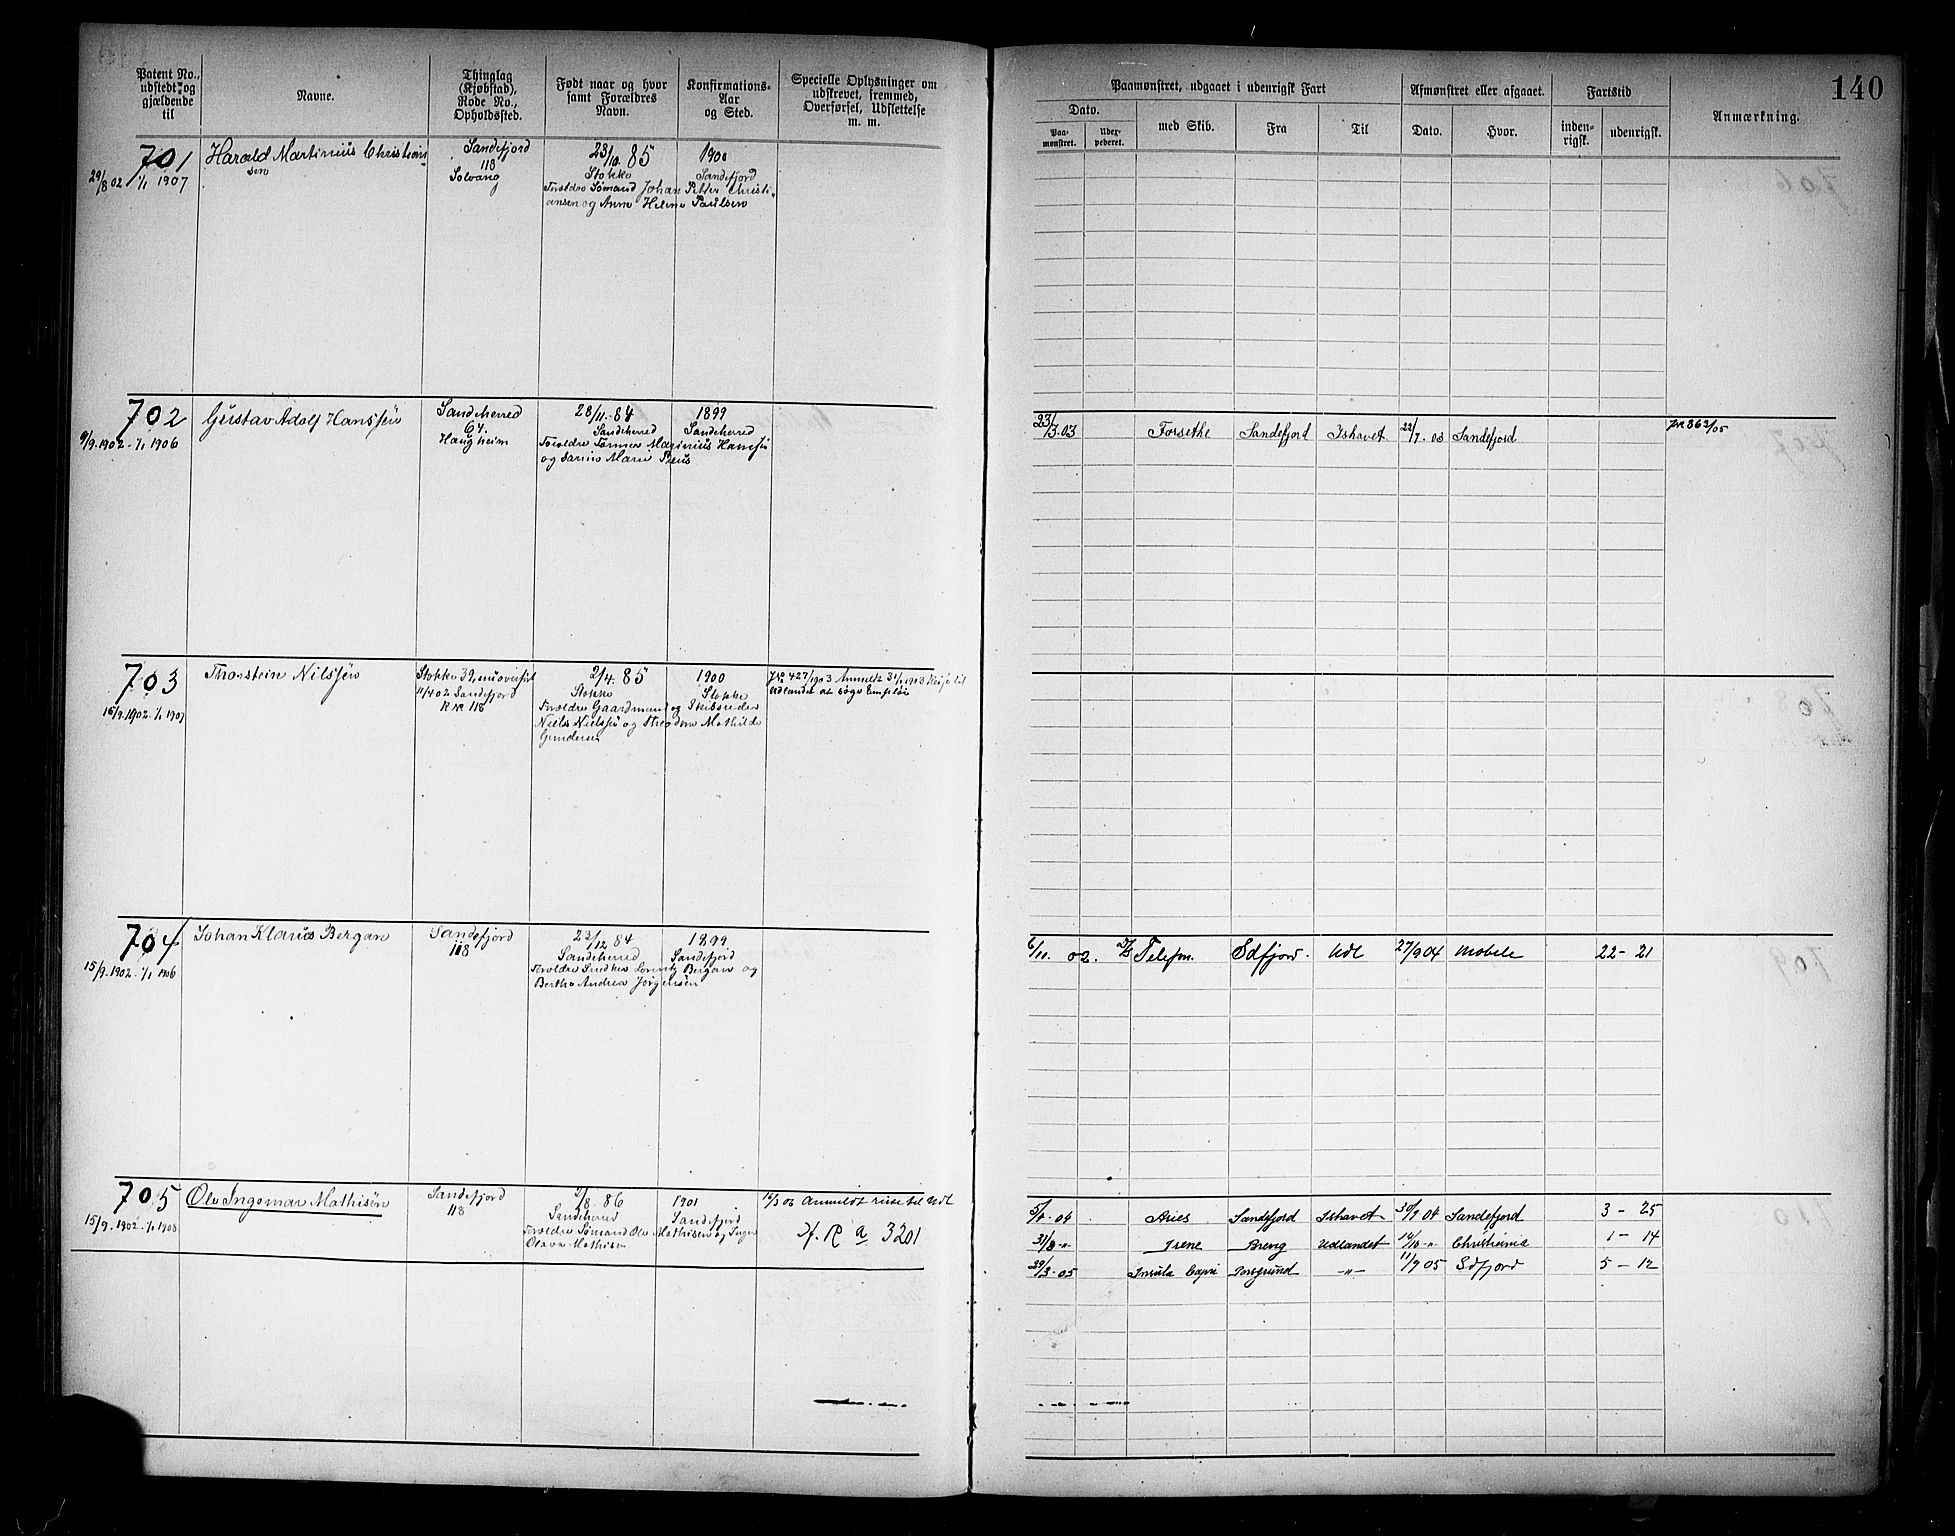 140
Patent No., udstedt og gjældende til
Navne.
Thinglag (Kjøbstad), Rode No., Opholdssted.
Født naar og hvor samt Forældres Navn.
Konfirmations-Aar og Sted.
Specielle Oplysninger om udskrevet, fremmed, Overførsel, Udslettelse m. m.
Paamønstret, udgaaet i udenrigsk Fart
Afmønstret eller afgaaet.
Fartstid
Anmærkning.
Dato.
Paa-mønstret.
Udex-pederet.
med Skib.
Fra
Til
Dato.
Hvor.
inden-rigsk.
udenrigsk.
701
29/8 02 1/1 1907
Harald Martinius Christian-
sen
Sandefjord
118
Solvang
23/10. 85
Stokke
Forældre Sømand Johan Petter Christi-
ansen og Anne Helene Paulsen
1900
Sandefjord
702
9/9. 1902 - 1/1 1906
Gustav Adolf Hanssen
Sandeherred
64.
Haugheim
28/11.- 84
Sandeherred
Forældre Tømmer Marinius Hanssen
og Marie
1899
Sandeherred
23/3.03
Forsethe
Sandefjord
Ishavet
22/7. 03
Sandefjord
jr 863/05
703
15/9. 1902 - 1/1 1907
Thorstein Nilssen
Stokke 39,
11/4 02 Sandefjord
R No 118
2/4. 85
Stokke
Forældre Gaardmand og Skibsreder
Niels Nielssen og Theodora Mathilde
Gundersen
1900
Stokke
Jno 427/1903 Anmeldt 31/1 1903 Rejse til
Udlandet at søge Empløi
704
15/9. 1902 - 1/1 1906
Johan Klarius Bergan
Sandefjord
118
23/12 84
Sandeherred
Forældre Snedker Lorentz Bergan og
Berthe Andrea Jørgensen
1899
Sandefjord
6/11. 02.
Telefon.
Sdfjord.
Udl
27/9 04
Mobile
22 - 21
705
15/9. 1902 - 1/1 1908
Ole Ingomar Mathisen
Sandefjord
118
/8 - 86
Sandeherred
Forældre Sømand Ole Mathisen og Inger
Olava Mathisen
1901
Sandefjord
14/3 06 Anmeldt reise til Udl
Jf. R a 3201
5/4 - 04
Aries
Sandefjord
Ishavet
30/7 04
Sandefjord
3 - 25
31/8 -"-
Irene
Udlandet
14/10 -"-
Christiania
1 - 14
29/3 - 05
Insula Capri
Porsgrund
-"-
11/9 05
Sdfjord
5 - 12